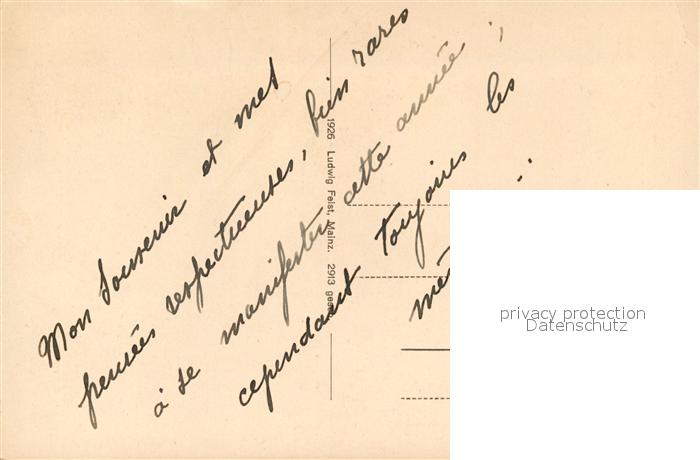 Mon Souvenir et mes
pensées respectueuses, bien rares
à se manifester cette année,
cependant toujours les
1926 Ludwig Feist, Mainz. 2913
privacy protection
Datenschutz